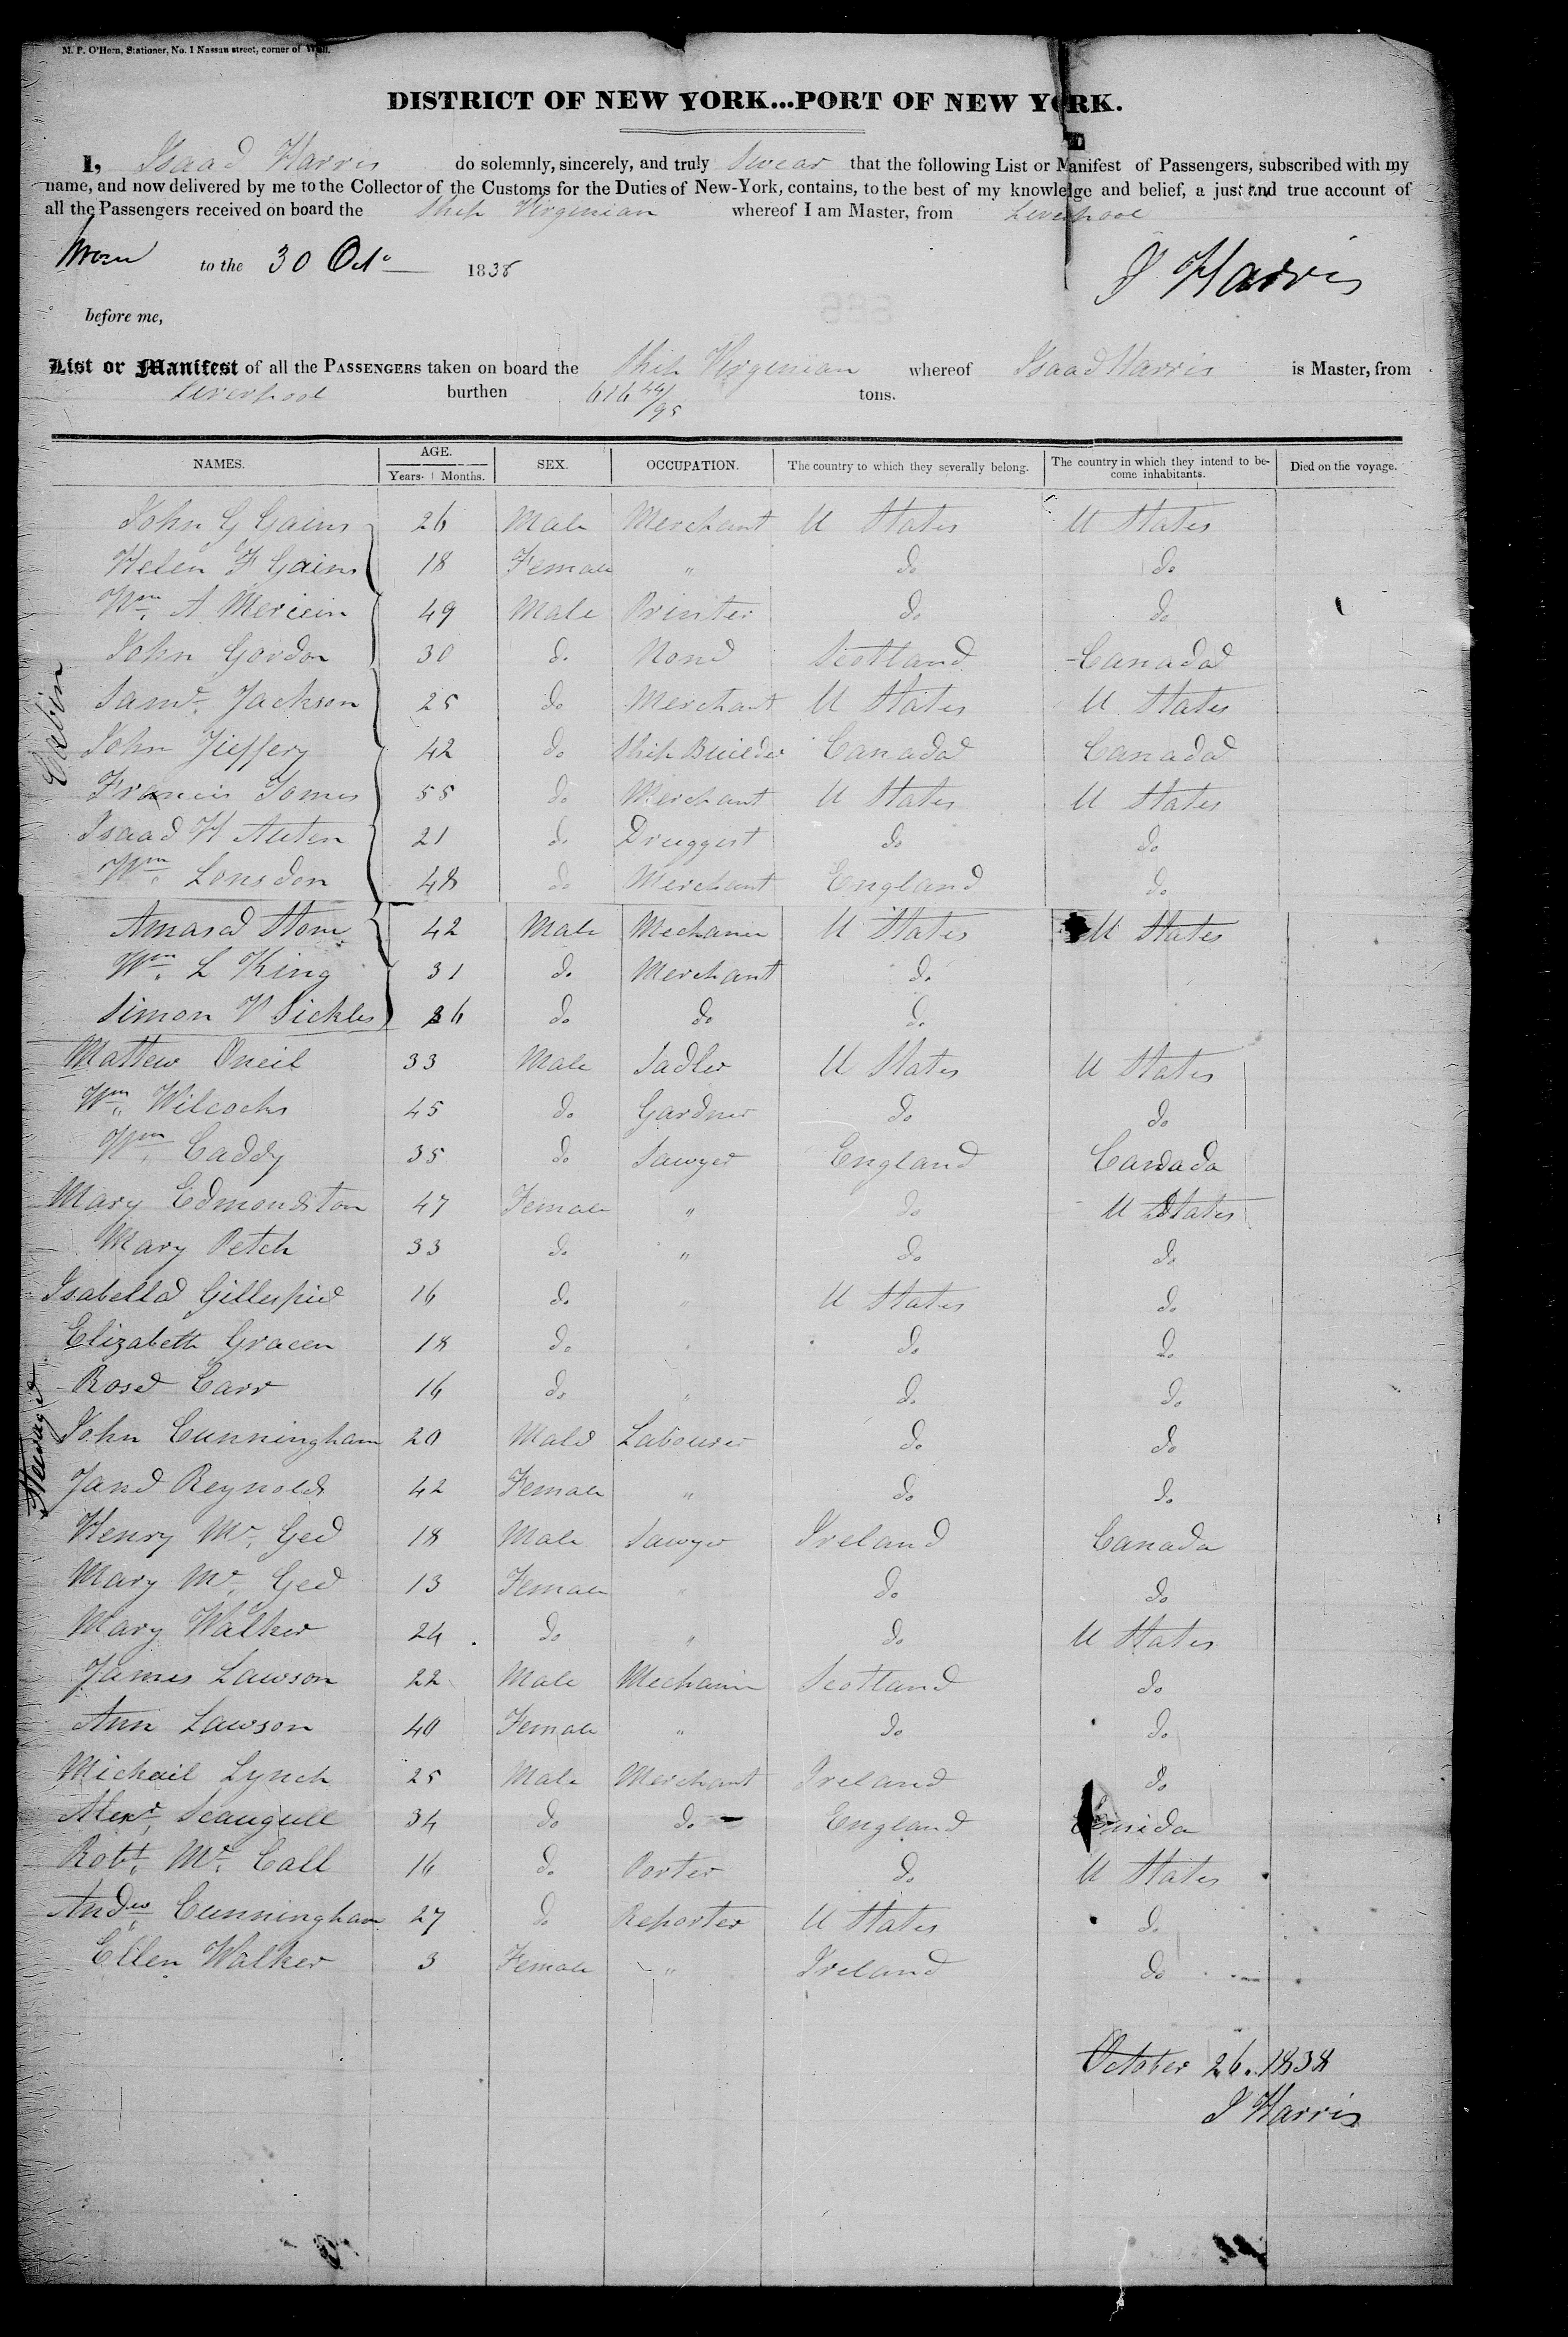 M. P. O'Hern, Stationer, No. 1 Nassau street, corner of Wall.
DISTRICT OF NEW YORK...PORT OF NEW YORK.
I, Isaac Harris do solemnly, sincerely, and truly Swear that the following List or Manifest of Passengers, subscribed with my
name, and now delivered by me to the Collector of the Customs for the Duties of New-York, contains, to the best of my knowledge and belief, a just and true account of
all the Passengers received on board the Ship Virginian whereof I am Master, from Liverpool
Sworn to the 30 Oct. 1838 I Harris
before me,
List or Manifest of all the PASSENGERS taken on board the Ship Virginian whereof Isaac Harris is Master, from
Liverpool burthen 616 44/95 tons.
NAMES. AGE. Years. Months. SEX. OCCUPATION. The country to which they severally belong. The country in which they intend to become inhabitants. Died on the voyage.
Cabin
John G Gains 26 Male Merchant U States U States
Helen F Gains 18 Female " do do
Wm. A Mercein 49 Male Printer do do
John Gordon 30 do None Scotland Canada
Saml. Jackson 25 do Merchant U States U States
John Jeffery 42 do Ship Builder Canada Canada
Francis Tomes 55 do Merchant U States U States
Isaac H Auten 21 do Druggist do do
Wm. Lonsdon 48 do Merchant England do
Amasa Stone 42 Male Mechanic U States U States
Wm. L King 31 do Merchant do
Simon V Sickles 26 do do do
Steerage
Mattew Oneil 33 Male Sadler U States U States
Wm. Wilcocks 45 do Gardner do do
Wm. Caddy 35 do Sawyer England Canada
Mary Edmondston 47 Female " do U States
Mary Petch 33 do " do do
Isabella Gillespie 16 do " U States do
Elizabeth Gracen 18 do " do do
Rose Carr 16 do " do do
John Cunningham 20 Male Labourer do do
Jane Reynolds 42 Female " do do
Henry Mc. Gee 18 Male Sawyer Ireland Canada
Mary Mc. Gee 13 Female " do do
Mary Walker 24 do " do U States
James Lawson 22 Male Mechanic Scotland do
Ann Lawson 40 Female " do do
Michail Lynch 25 Male Merchant Ireland do
Alexr. Seaugull 34 do do England
Robt. Mc. Call 16 do Porter do U States
Andw. Cunningham 27 do Reporter U States do
Ellen Walker 3 Female " Ireland do
October 26. 1838
I Harris